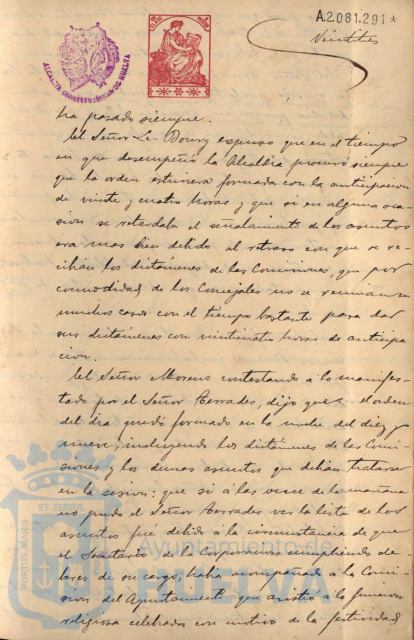 A.2081.291*
Veintitres
ALCALDIA CONSTITUCIONAL DE HUELVA
ha pasado siempre.
El Señor Le-Bourg expuso que en el tiempo
en que desempeñó la Alcaldía procuró siempre
que la orden estuviera formada con la anticipacion
de veinte y cuatro horas y que si en alguna oca-
sion se retardaba el señalamiento de los asuntos
era mas bien debido al retraso con que se re-
cibian los dictámenes de las Comisiones, que por
comodidad de los Concejales no se reunian en
muchos casos con el tiempo bastante para dar
sus dictámenes con veinticuatro horas de anticipa
cion.
El Señor Moreno contestando á lo manifes-
tado por el Señor Terrades, dijo que el orden
del dia quedó formado en la noche del diez y
nueve, incluyendo los dictámenes de las Comi-
siones y los demas asuntos que debian tratarse
en la sesion: que si á las once de la mañana
no pudo el Señor Terrades ver la lista de los
asuntos fue debido á la circunstancia de que
el Secretario de la Corporacion cumpliendo de-
beres de su cargo, habia acompañado á la Comi-
sion del Ayuntamiento que asistió á la funcion
religiosa celebrada con motivo de la festividad
PORTUS MARIS
ET TERRÆ
Ayuntamiento de
HUELVA